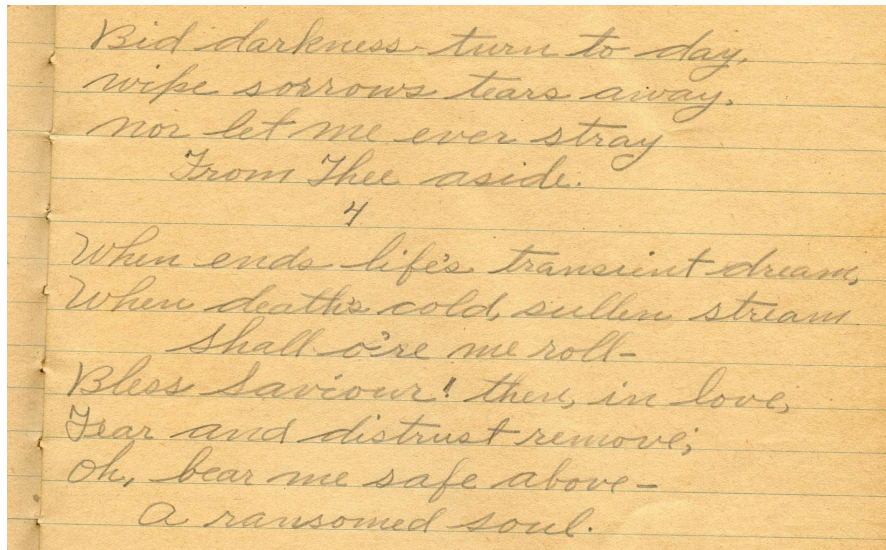 Bid darkness turn to day,
wipe sorrows tears away,
nor let me ever stray
From Thee aside.
4
When ends life's transient dream,
When death's cold, sullen stream
Shall o're me roll-
Bless Saviour! then, in love,
Fear and distrust remove;
Oh, bear me safe above-
A ransomed soul.